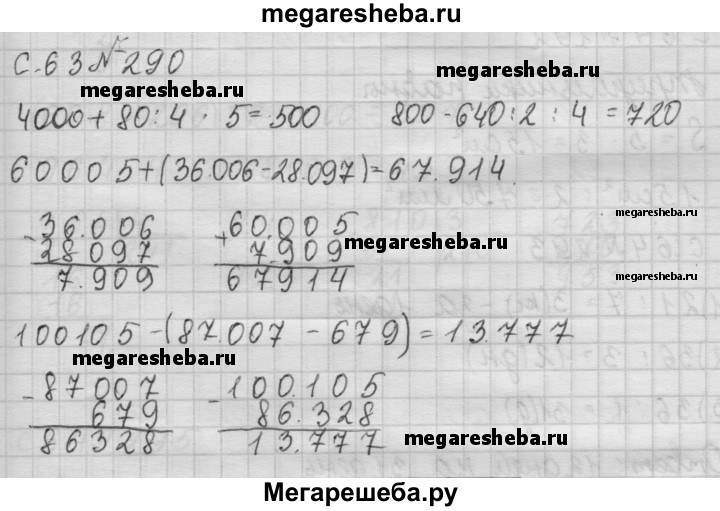 megaresheba.ru
с. 63 № 290
megaresheba.ru
megaresheba.ru
4000 + 80 : 4 · 5 = 500 800 - 640 : 2 : 4 = 720
60005 + (36.006 - 28.097) = 67.914
megaresheba.ru
- 36.006 + 60.005
28097 7.909
7.909 67914
megaresheba.ru
megaresheba.ru
100105 - (87.007 - 679) = 13.777
megaresheba.ru
- 87007 - 100.105
679 86.328
86328 13.777
megaresheba.ru
Мегарешеба.ру